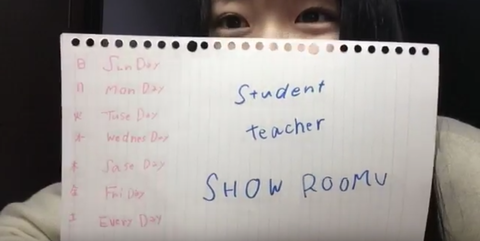 Sun Day
Mon Day
Tuse Day
Wednes Day
Sase Day
Fri Day
Every Day
Student
teacher
SHOW ROOMV